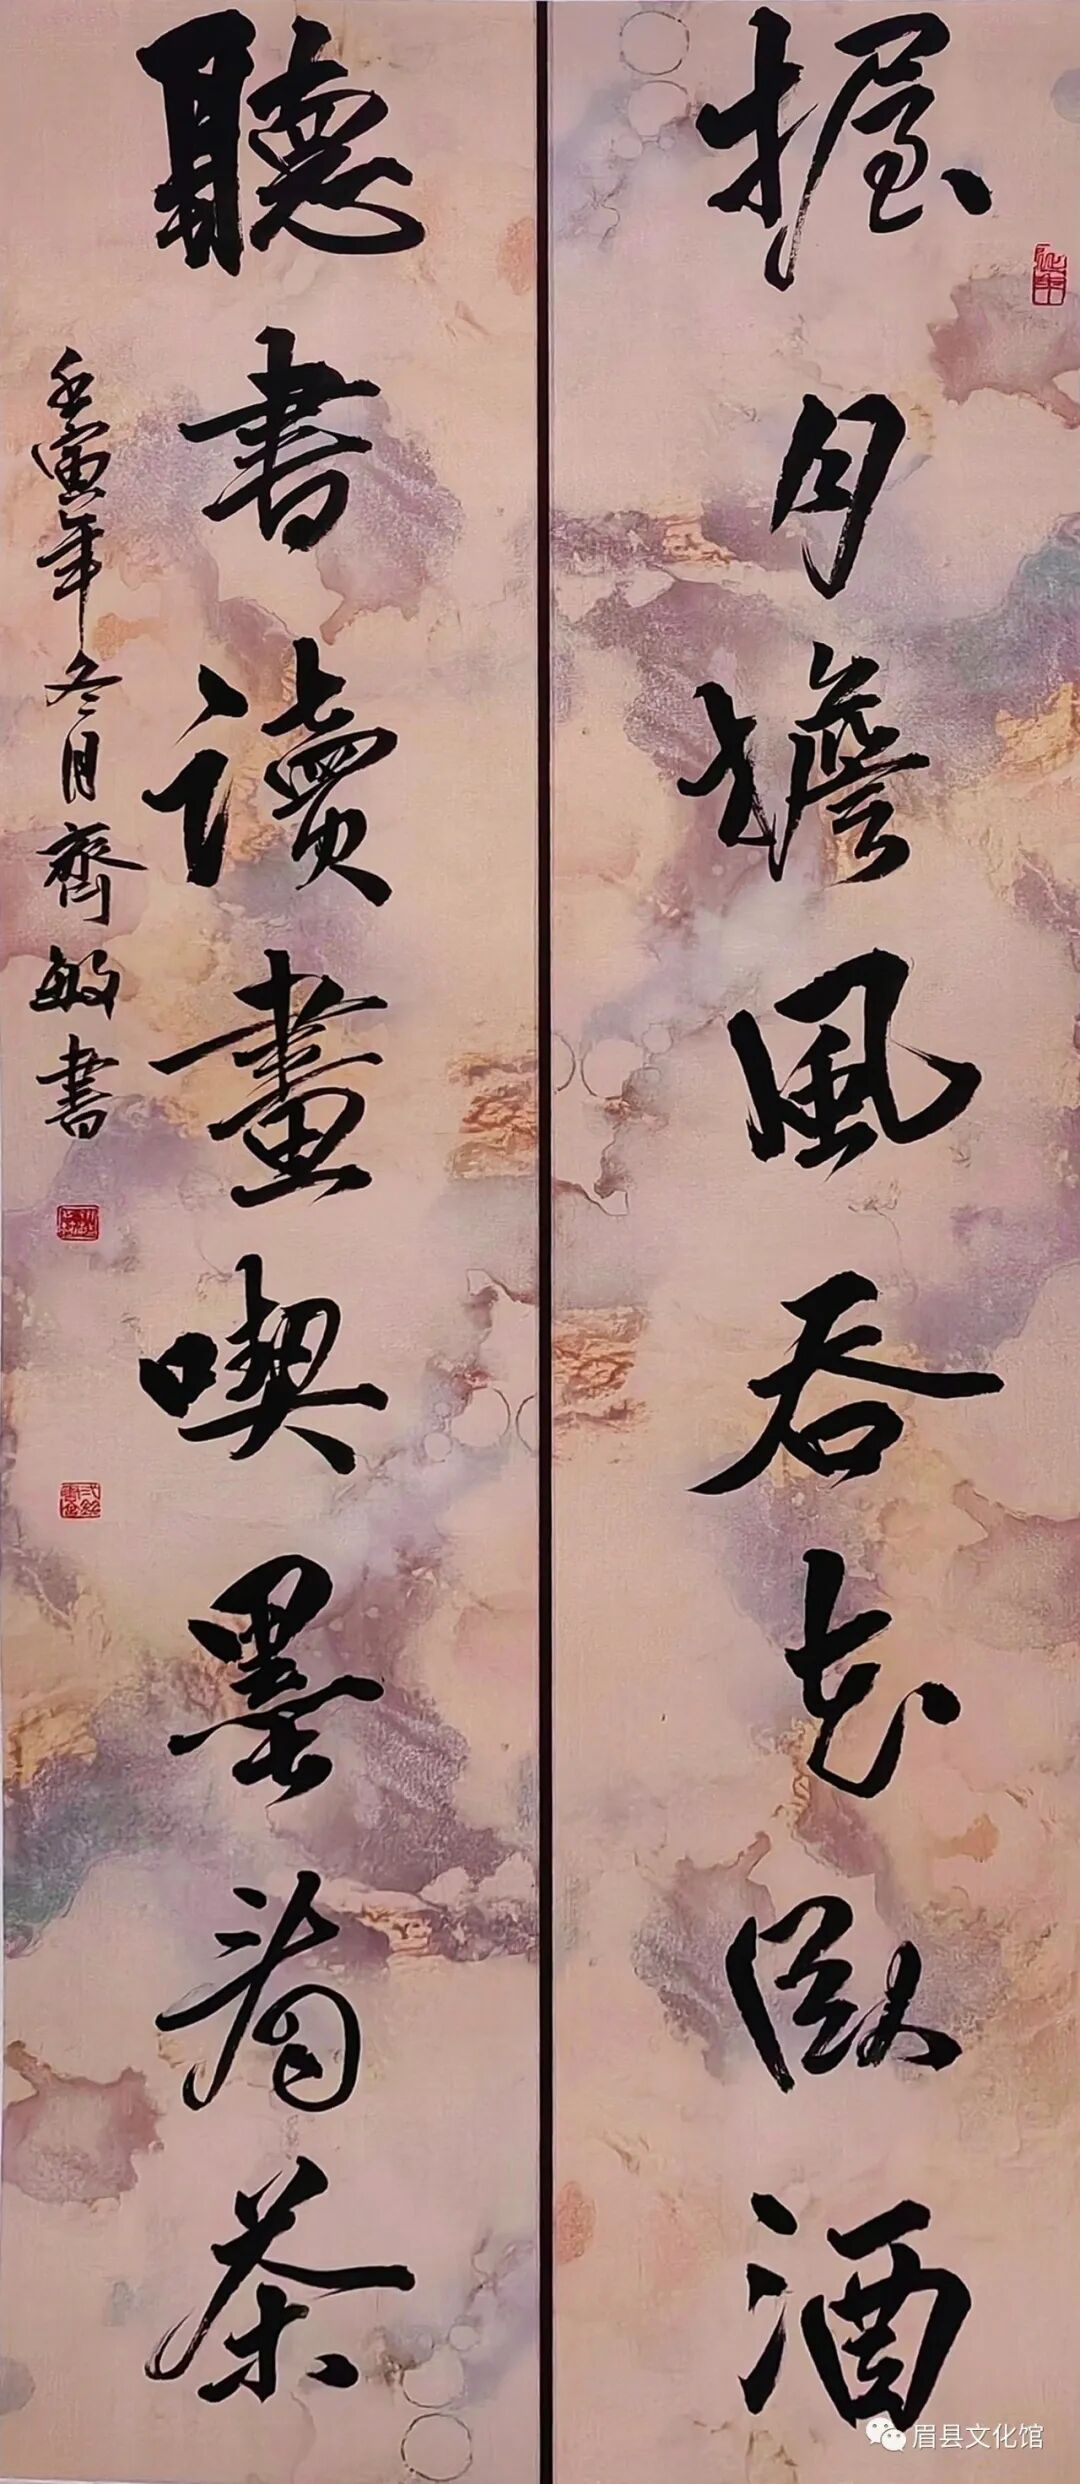 握月擔風吞花臥酒
聽書讀畫喫墨看茶
壬寅年冬月齊敏書
眉县文化馆